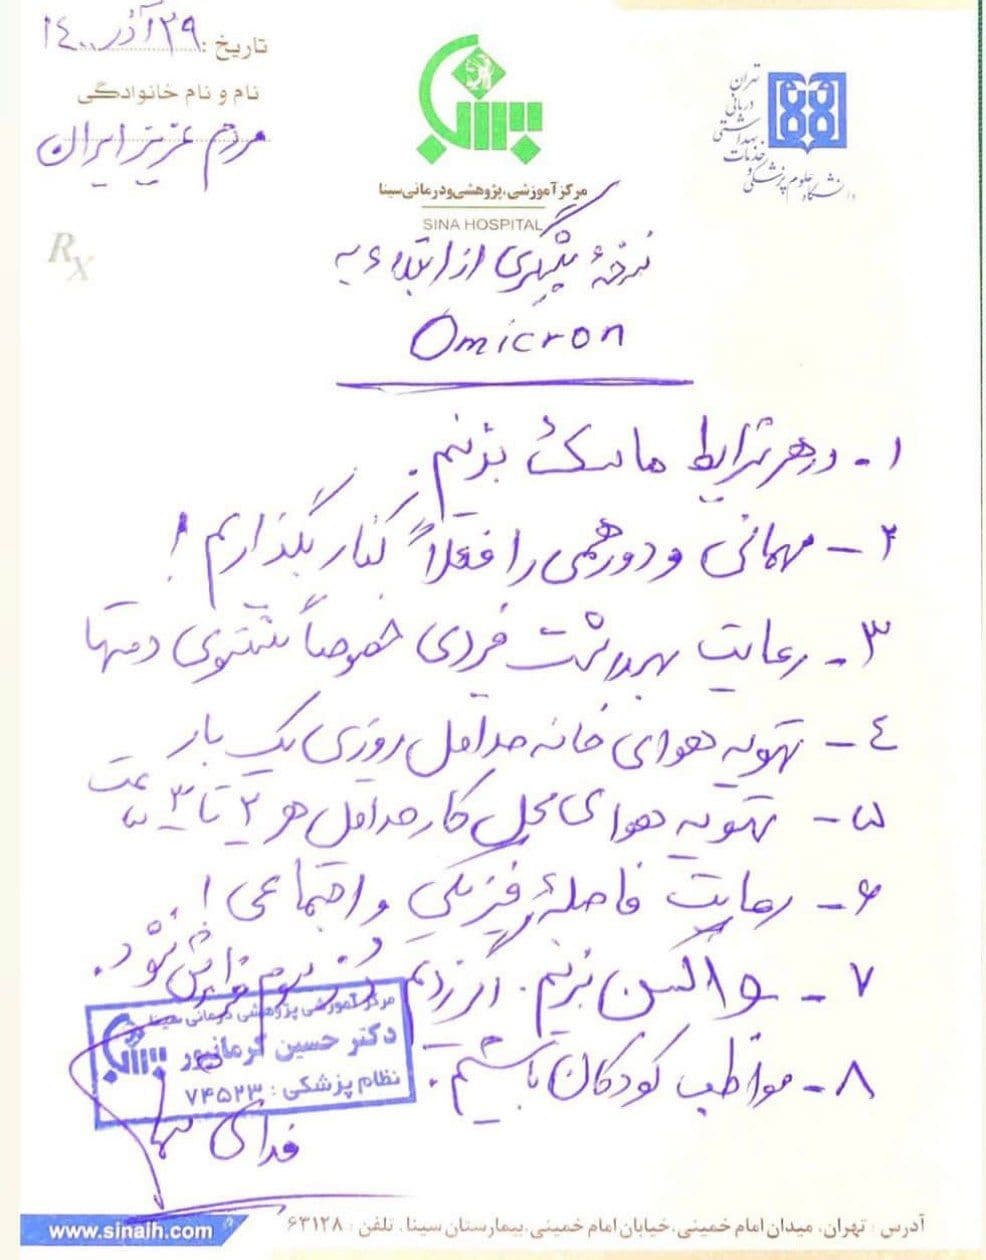 تاریخ: ۲۹ آذر ۱۴۰۰
نام و نام خانوادگی
مردم عزیز ایران
Rx
سینا
مرکز آموزشی، پژوهشی و درمانی سینا
SINA HOSPITAL
دانشگاه علوم پزشکی و خدمات بهداشتی درمانی تهران
نسخهٔ پیشگیری از ابتلاء به
Omicron
۱- در هر شرایط ماسک بزنیم.
۲- مهمانی و دورهمی را فعلاً کنار بگذاریم!
۳- رعایت بهداشت فردی خصوصاً شستشوی دستها
۴- تهویه هوای خانه حداقل روزی یک بار
۵- تهویه هوای محل کار حداقل هر ۲ تا ۳ ساعت
۶- رعایت فاصلهٔ فیزیکی و اجتماعی!
۷- واکسن بزنیم. اگر زدیم دز سوم فراموش نشود.
۸- مواظب کودکان باشیم.
مرکز آموزشی پژوهشی درمانی سینا
دکتر حسین کرمانپور
نظام پزشکی: ۷۴۵۲۳
سینا
فدای شما
آدرس: تهران، میدان امام خمینی، خیابان امام خمینی، بیمارستان سینا، تلفن: ۶۳۱۲۸
www.sinaih.com